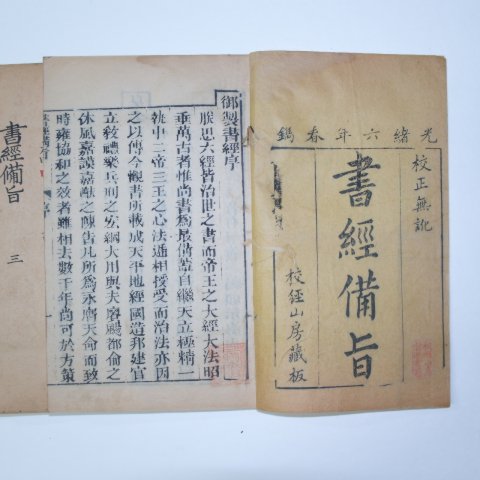 光緒六年春鐫
校正無訛
書經備旨
校經山房藏板
御製書經序
朕思六經皆治世之書而帝王之大經大法昭
垂萬古者惟尚書為最備蓋自繼天立極精一
執中二帝三王之心法遞相授受而治法亦因
之以傳今觀書所載成天平地經國造邦建官
立教禮樂兵刑之宏綱大用與夫賡颺都俞之
休風嘉謨嘉猷之陳告凡所為永膺天命而致
時雍協和之效者雖相去數千年尚可於方策
書經備旨 序
書經備旨 三